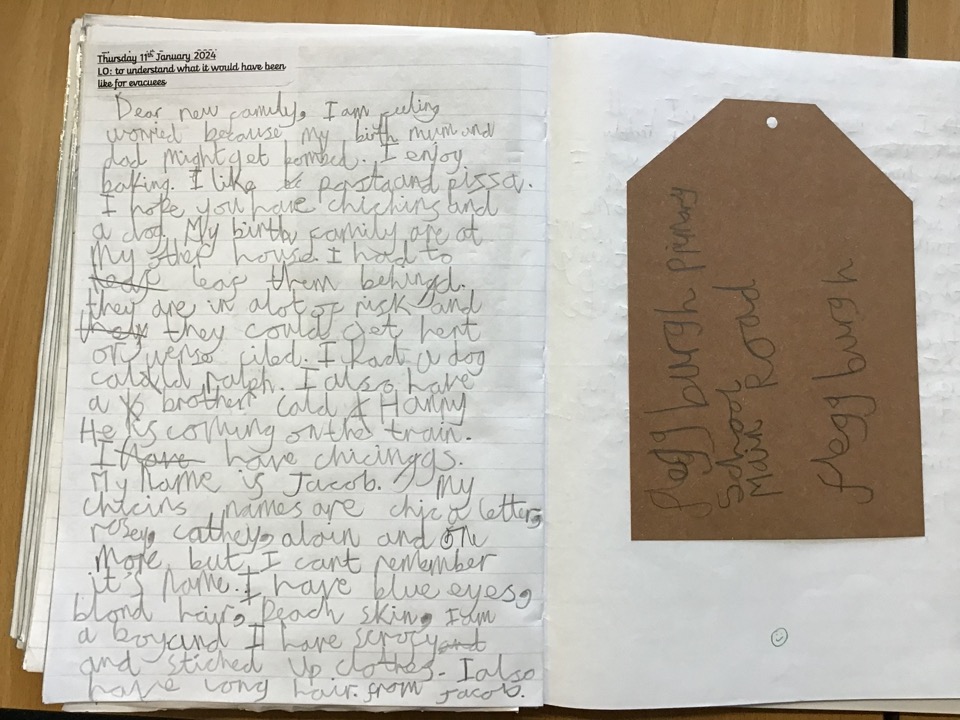 Thursday 11th January 2024
LO: to understand what it would have been
like for evacuees
Dear new family, I am feeling
worried because my birth mum and
dad might get bombed. I enjoy
baking. I like pasta and pissa.
I hope you have chichins and
a dog. My birth family are at
My other house. I had to
leaf them behingd.
they are in alot of risk and
they they could get hert
or ciled. I had a dog
calald ralph. I also have
a brother cald Harry
He is coming on the train.
I have have chicinggs.
My name is Jacob. My
chicins names are chic a letter,
rosey, cathey, alain and one
more but I cant remember
it's name. I have blue eyes,
blond hair, peach skin, I am
a boy and I have scrucy and
and stiched up clothes. I also
have long hair. from Jacob.
flegg burgh primary
School
Main Road
flegg burgh